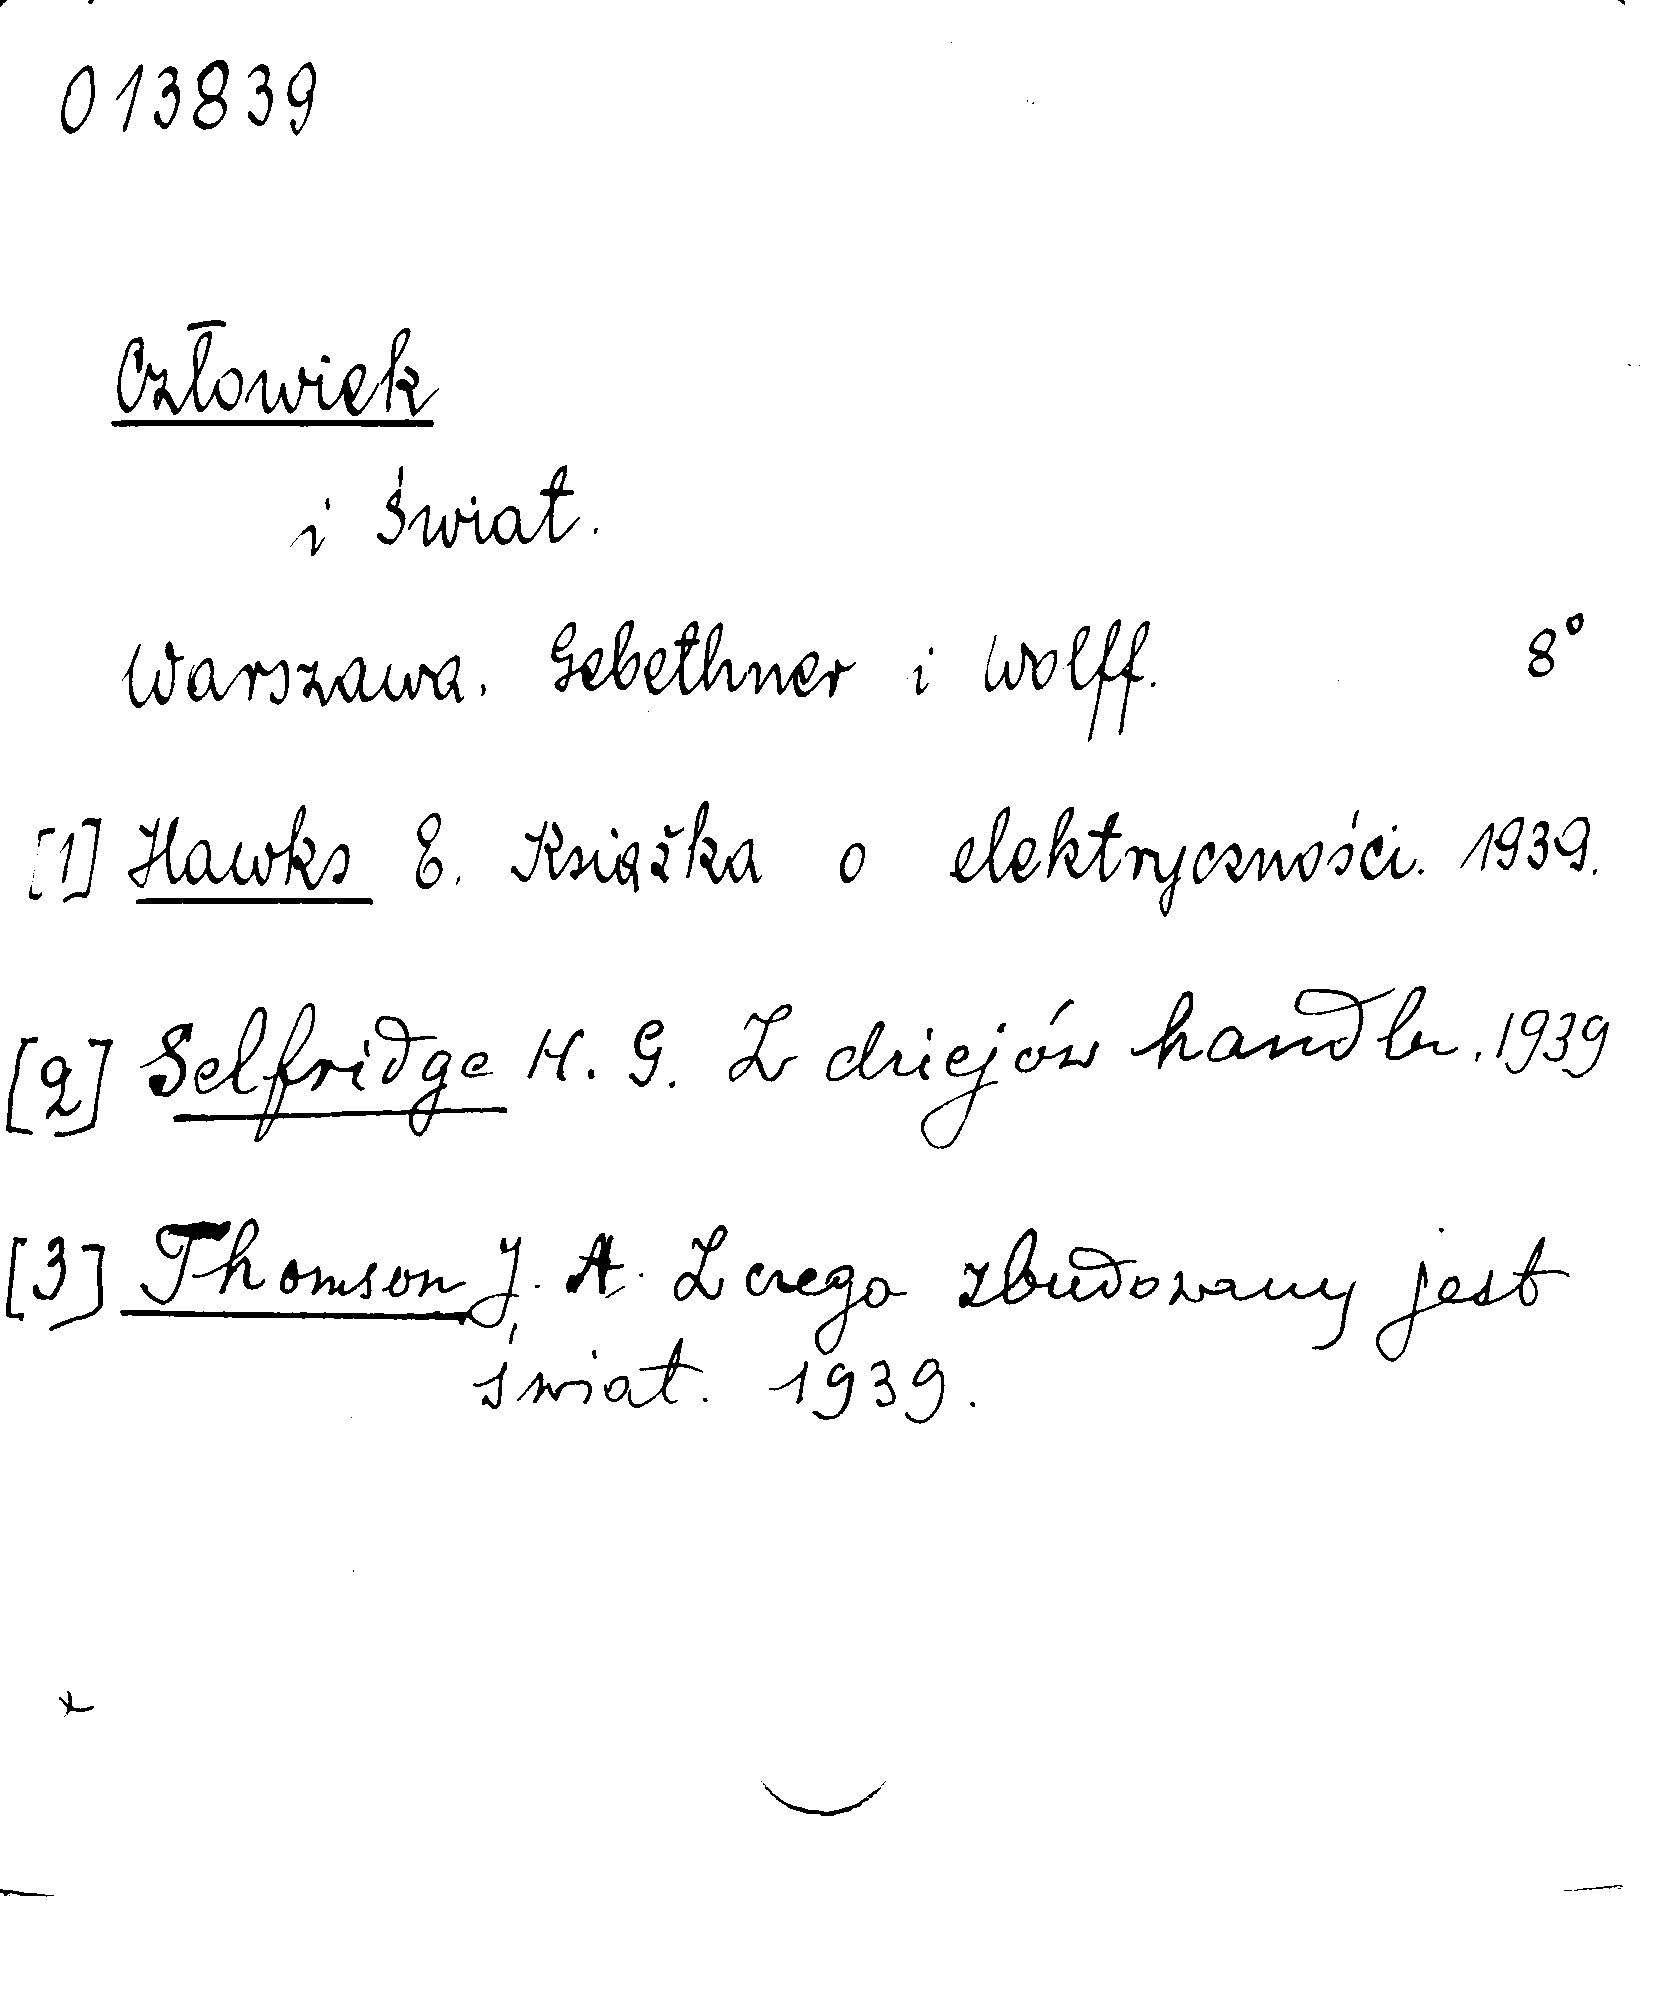 013839
Człowiek
i świat.
Warszawa. Gebethner i Wolff. 8°
[1] Hawks E. Książka o elektryczności. 1939.
[2] Selfridge H. G. Z dziejów handlu. 1939
[3] Thomson J. A. Z czego zbudowany jest
świat. 1939.